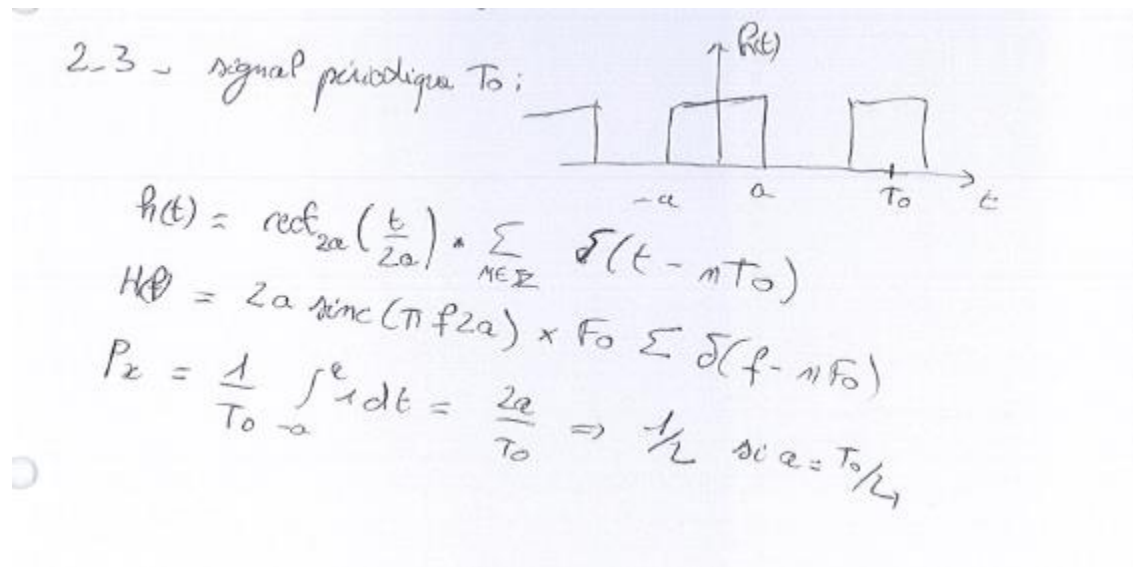 2-3 - signal périodique To :
h(t)
-a a To t
h(t) = rect_2a (t/2a) * Σ_{n∈ℤ} δ(t - nTo)
H(f) = 2a sinc(π f 2a) × Fo Σ δ(f - nFo)
Px = 1/To ∫_{-a}^{a} 1 dt = 2a/To => 1/2 si a = To/4